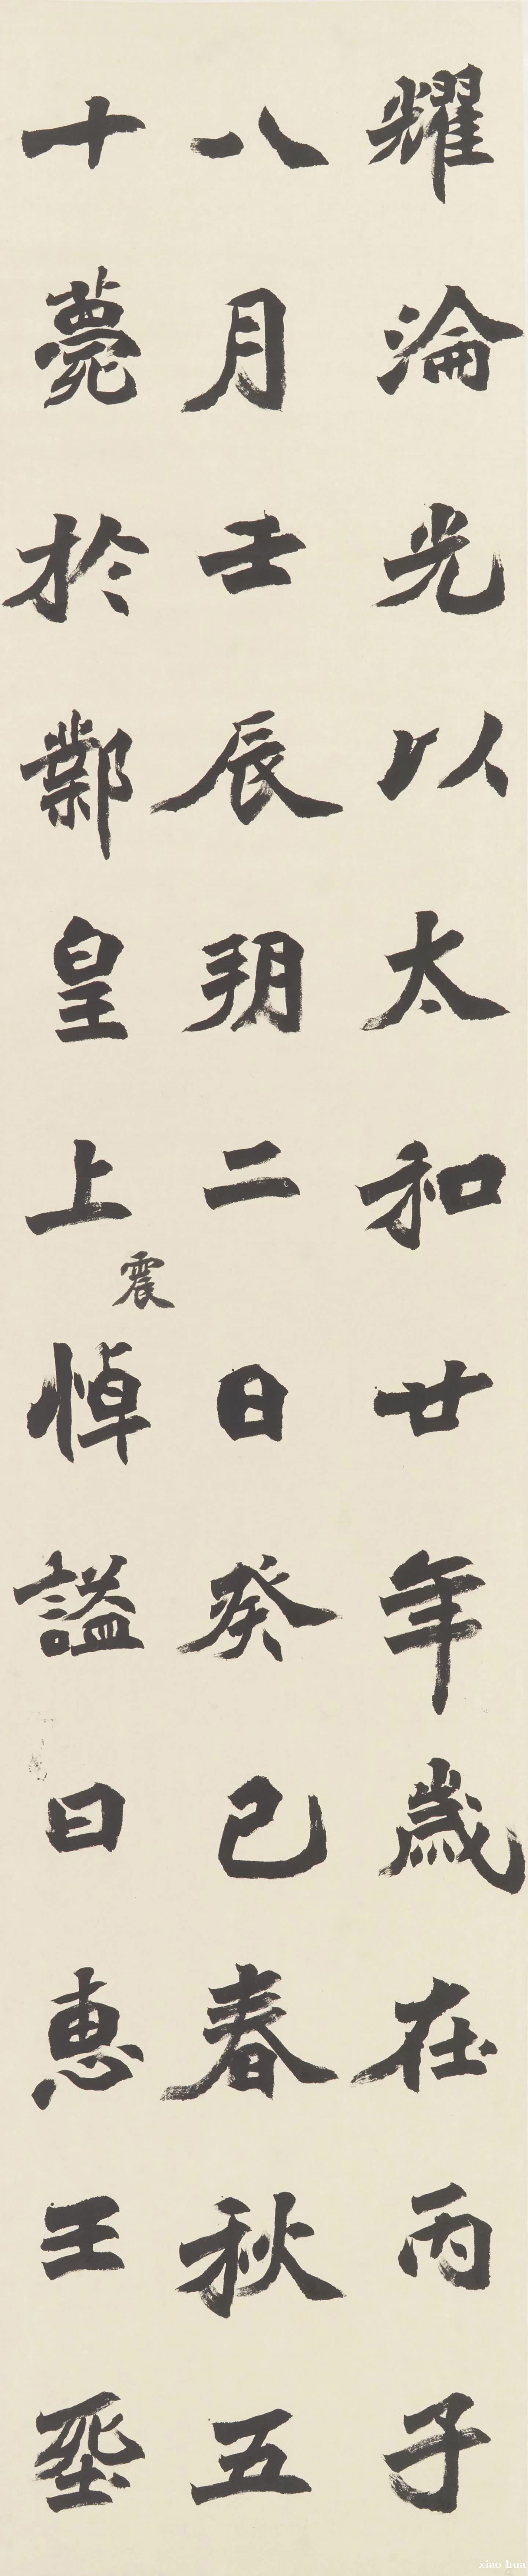 耀淪光以太和廿年歲在丙子
八月壬辰朔二日癸巳春秋五
十薨於鄴皇上震悼謚曰惠王塟
xiao hua